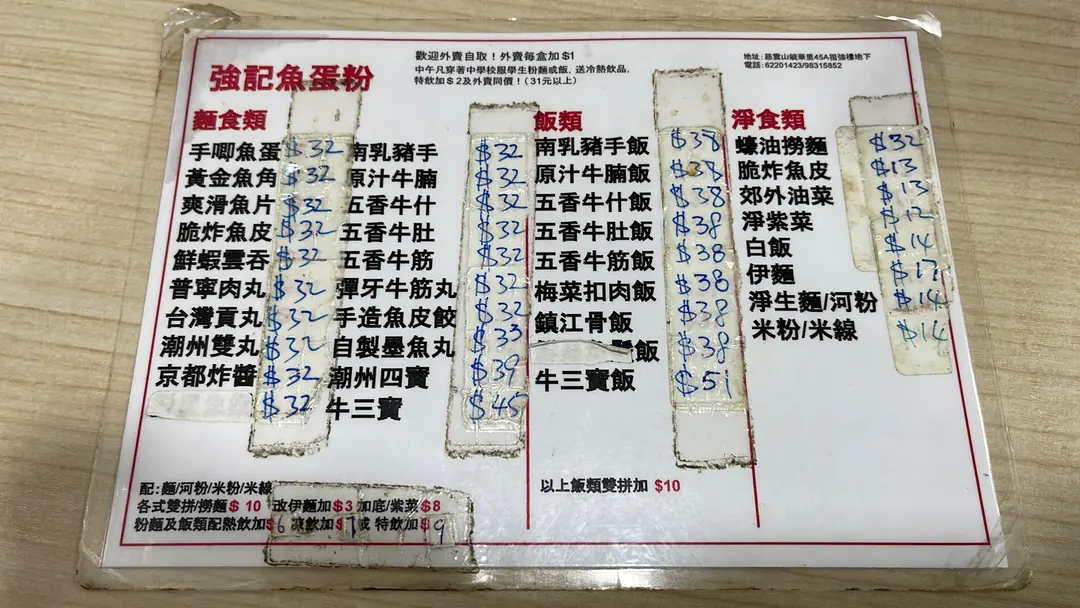 強記魚蛋粉
歡迎外賣自取！外賣每盒加 $1
中午凡穿著中學校服學生粉麵或飯，送冷熱飲品，
特飲加＄2及外賣同價！（31元以上）
地址：慈雲山毓華里45A祖強樓地下
電話：62201423/98315852
麵食類
手唧魚蛋 $32
黃金魚角 $32
爽滑魚片 $32
脆炸魚皮 $32
鮮蝦雲吞 $32
普寧肉丸 $32
台灣貢丸 $32
潮州雙丸 $32
京都炸醬 $32
$32
南乳豬手 $32
原汁牛腩 $32
五香牛什 $32
五香牛肚 $32
五香牛筋 $32
彈牙牛筋丸 $32
手造魚皮餃 $32
自製墨魚丸 $33
潮州四寶 $39
牛三寶 $45
飯類
南乳豬手飯 $38
原汁牛腩飯 $38
五香牛什飯 $38
五香牛肚飯 $38
五香牛筋飯 $38
梅菜扣肉飯 $38
鎮江骨飯 $38
飯 $38
牛三寶飯 $51
淨食類
蠔油撈麵 $32
脆炸魚皮 $13
郊外油菜 $13
淨紫菜 $12
白飯 $14
伊麵 $17
淨生麵/河粉 $14
米粉/米線 $14
配：麵/河粉/米粉/米線
各式雙拼/撈麵＄ 10 改伊麵加＄3 加底/紫菜＄8
粉麵及飯類配熱飲加$6 凍飲加$7或 特飲加$9
以上飯類雙拼加 $10